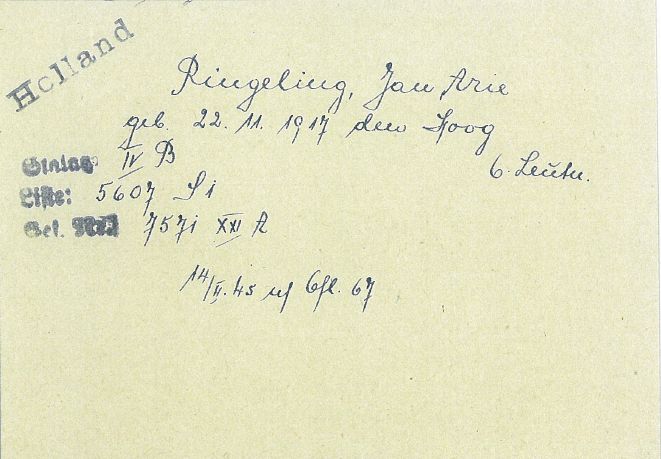 Holland
Ringeling, Jan Arie
geb. 22. 11. 1917 den Hoog
Stalag: IV B
6. Leutn.
Liste: 5607 Si
Gef. 7571 XXI A
14/II. 45 Ofl. 67